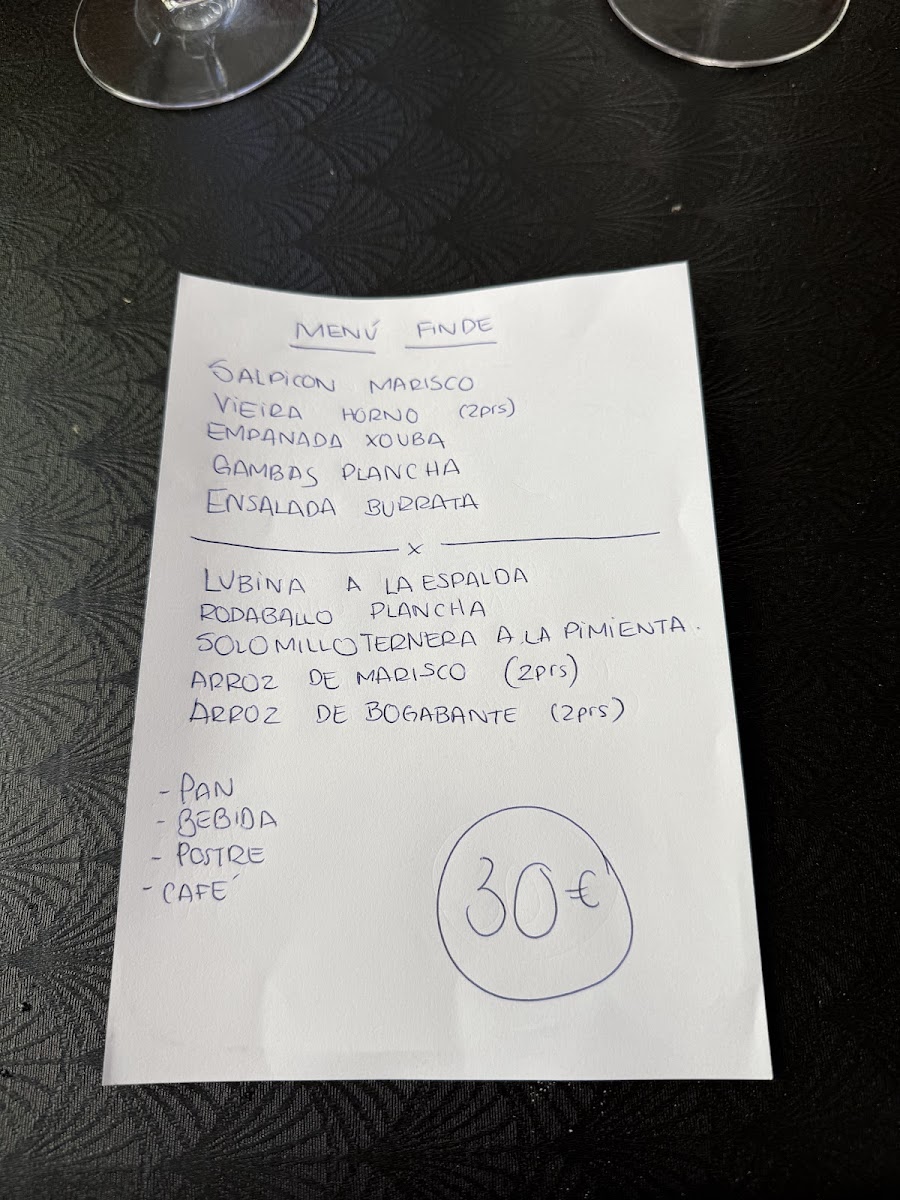 MENÚ FINDE
SALPICON MARISCO
VIEIRA HORNO (2prs)
EMPANADA XOUBA
GAMBAS PLANCHA
ENSALADA BURRATA
x
LUBINA A LA ESPALDA
RODABALLO PLANCHA
SOLOMILLO TERNERA A LA PIMIENTA.
ARROZ DE MARISCO (2prs)
ARROZ DE BOGABANTE (2prs)
- PAN
- BEBIDA
- POSTRE
- CAFÉ
30€